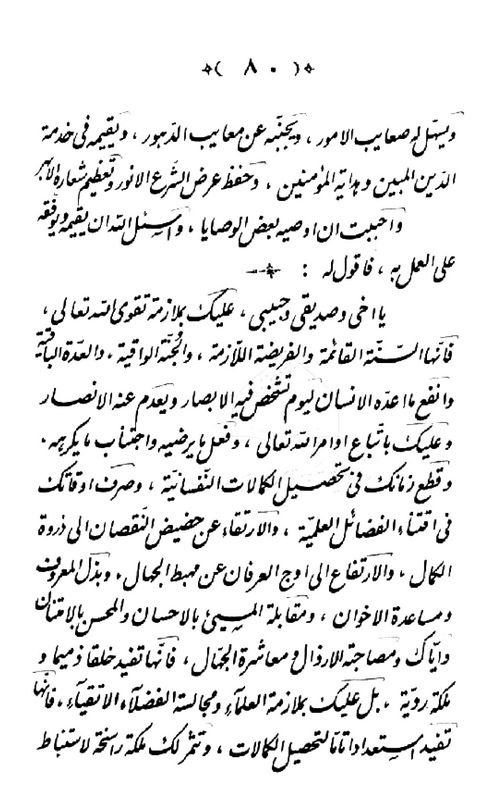 (٨٠)
ويسهّل له صعايب الامور ، ويجنّبه عن معايب الدهور ، ويقيمه فى خدمة
الدّين المبين وهداية المؤمنين ، وحفظ عرض الشّرع الانور وتعظيم شعاره الابهر
واحببت ان اوصيه ببعض الوصايا ، واسئل اللّه ان يقيمه ويوفّقه
على العمل به ، فاقول له :
يا اخى وصديقى وحبيبى ، عليك بملازمة تقوى اللّه تعالى ،
فانّها السّنّة القائمة والفريضة اللّازمة ، والجُنّة الواقية . والعدّة الباقية
وانفع ما اعدّه الانسان ليوم تشخص فيه الابصار ويعدم عنه الانصار
وعليك باتّباع اوامر اللّه تعالى ، وفعل ما يرضيه واجتناب ما يكرهه .
وقطع زمانك فى تحصيل الكمالات النّفسانيّة ، وصرف اوقاتك
فى اقتناء الفضائل العلميّة ، والارتقاء عن حضيض النّقصان الى ذروة
الكمال ، والارتفاع الى اوج العرفان عن مهبط الجهال . وبذل المعروف
ومساعدة الاخوان ، ومقابلة المسيئ بالاحسان والمحسن بالامتنان
وايّاك ومصاحبة الارذال ومعاشرة الجهّال ، فانّها تفيد خلقا ذميما و
ملكة رديّة . بل عليك بملازمة العلماء ومجالسة الفضلاء الاتقياء . فانّها
تفيد استعدادا تامّا لتحصيل الكمالات ، وتثمر لك ملكة راسخة لاستنباط